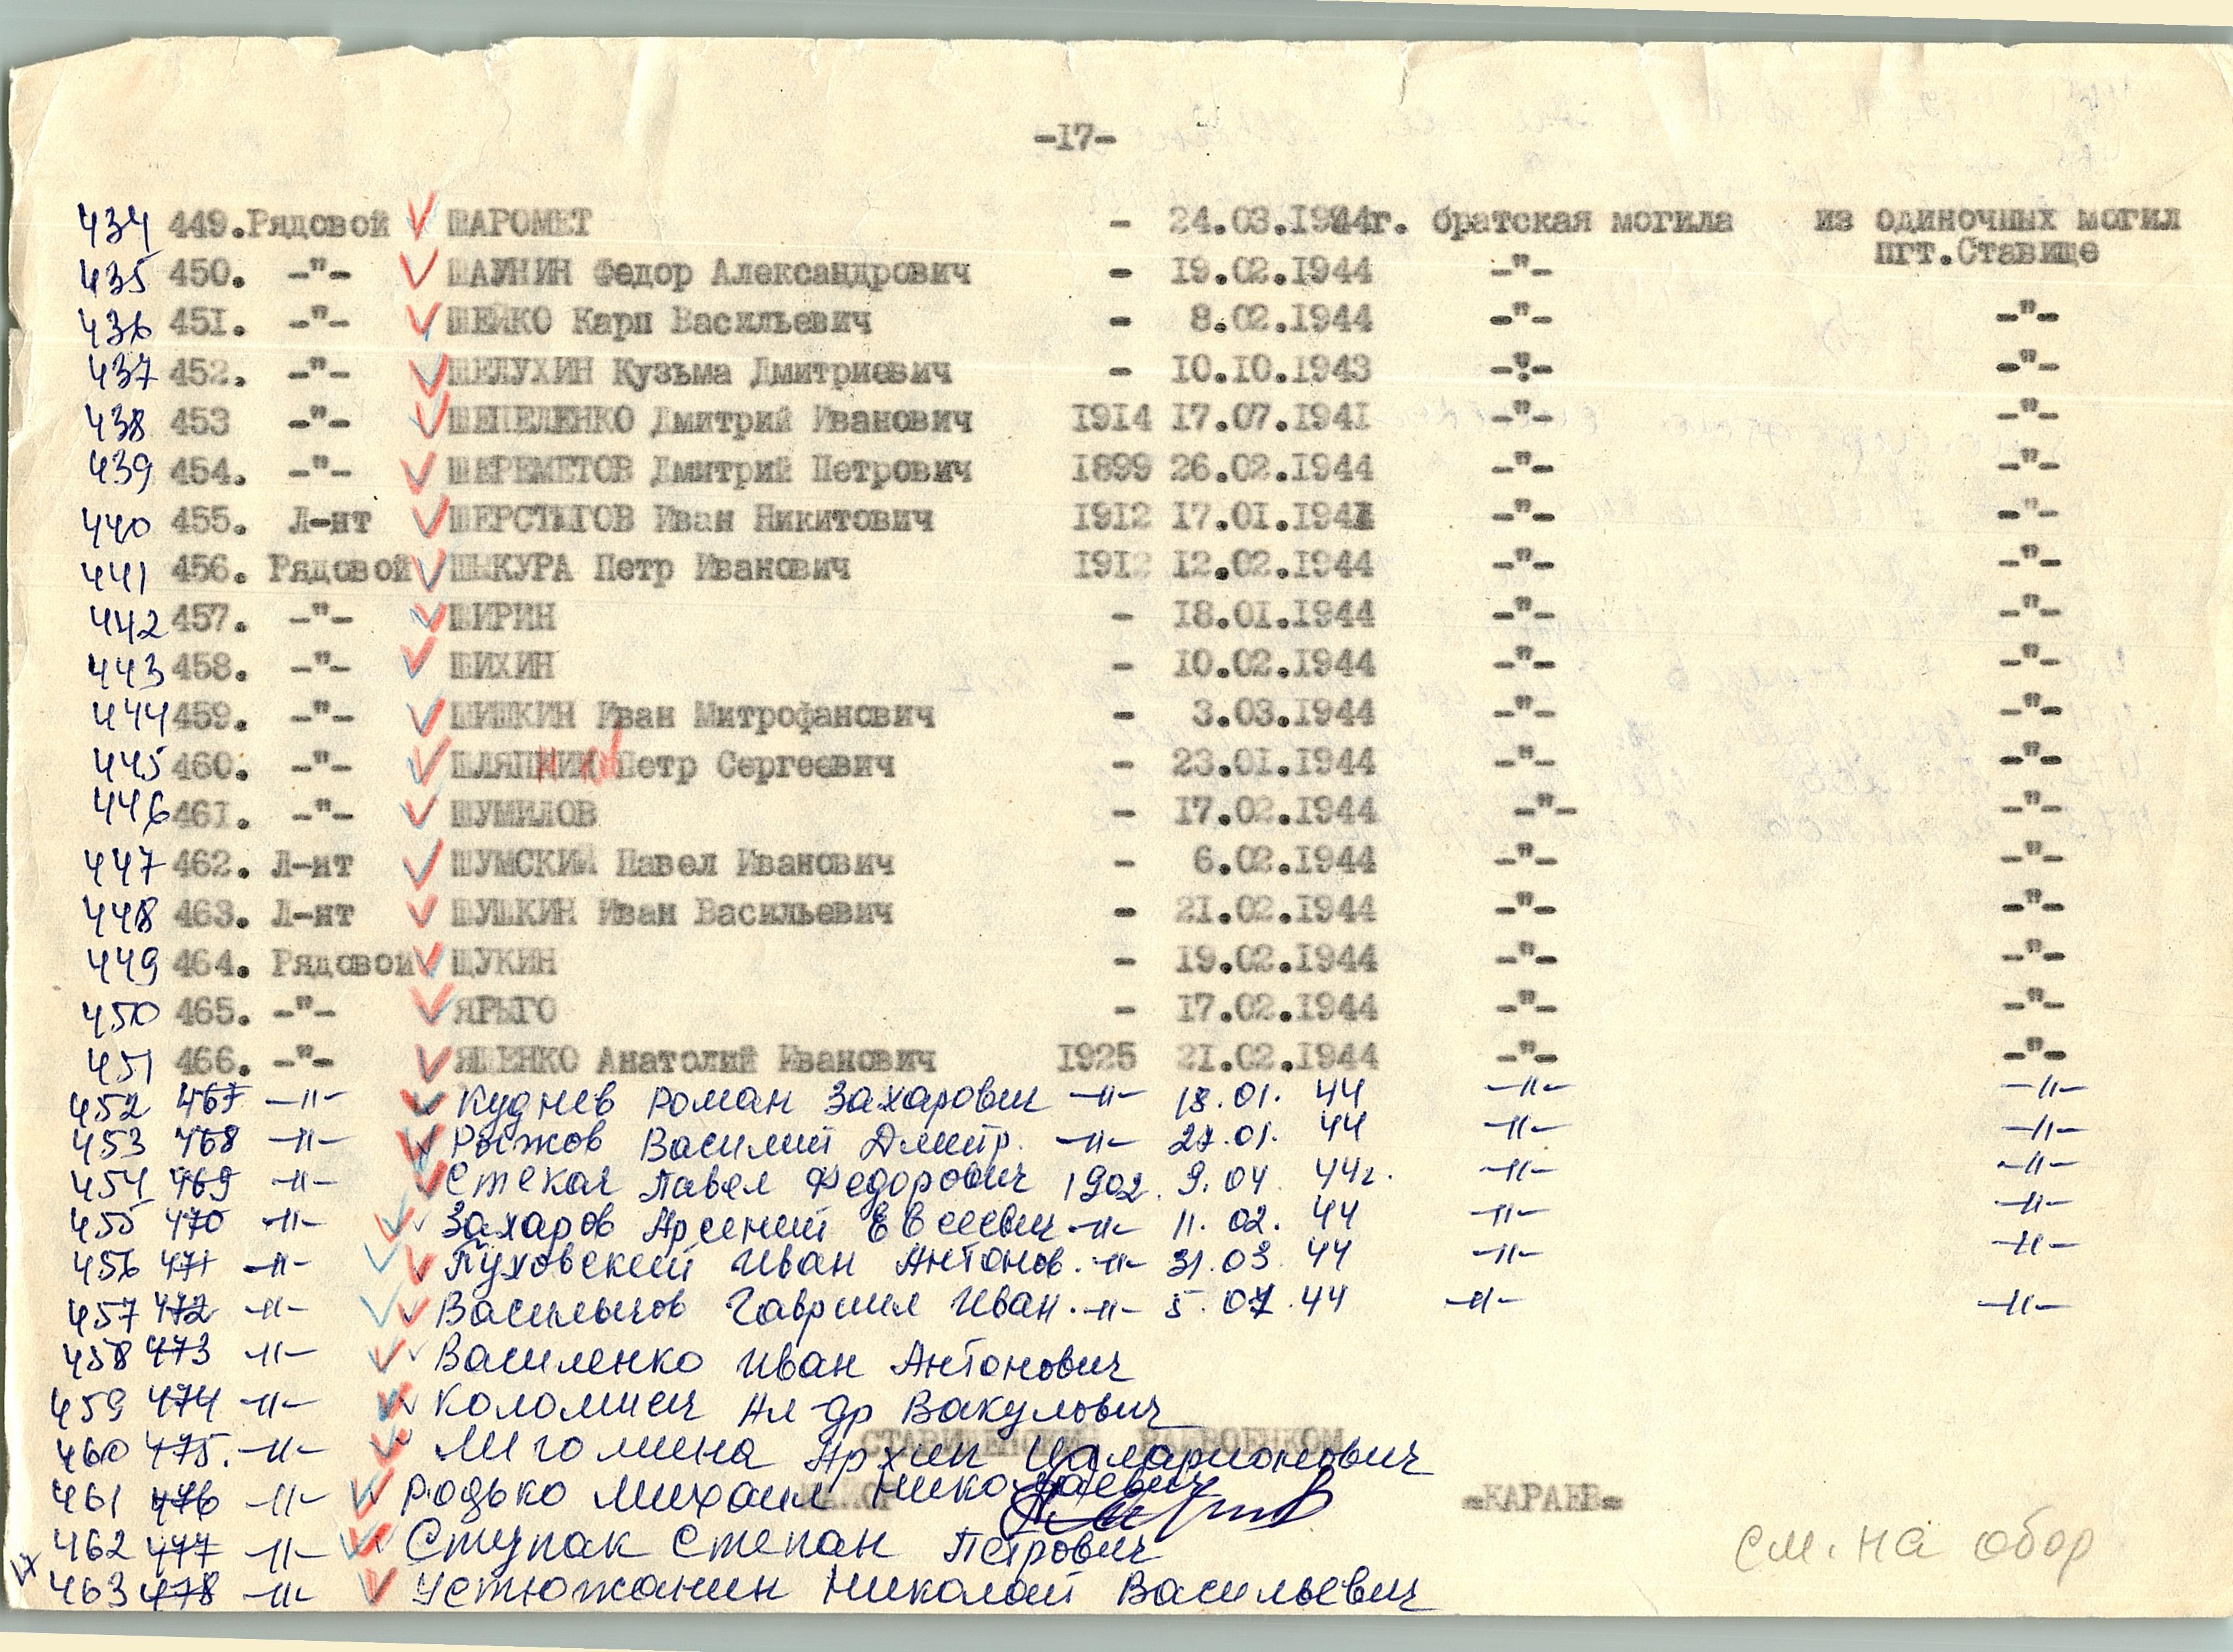 -17-
434 449. Рядовой ШАРОМЕТ - 24.03.1944г. братская могила из одиночных могил
пгт.Ставище
435 450. -"- ШАУНИН Федор Александрович - 19.02.1944 -"-
436 451. -"- ШЕЙКО Карп Васильевич - 8.02.1944 -"- -"-
437 452. -"- ШЕЛУХИН Кузьма Дмитриевич - 10.10.1943 -"- -"-
438 453 -"- ШЕПЕЛЕНКО Дмитрий Иванович 1914 17.07.1941 -"- -"-
439 454. -"- ШЕРЕМЕТОВ Дмитрий Петрович 1899 26.02.1944 -"- -"-
440 455. Л-нт ШЕРСТЯГОВ Иван Никитович 1912 17.01.194 -"- -"-
441 456. Рядовой ШЫКУРА Петр Иванович 1912 12.02.1944 -"- -"-
442 457. -"- ШИРИН - 18.01.1944 -"- -"-
443 458. -"- ШИХИН - 10.02.1944 -"- -"-
444 459. -"- ШИШКИН Иван Митрофанович - 3.03.1944 -"- -"-
445 460. -"- ШЛЯПКИН Петр Сергеевич - 23.01.1944 -"- -"-
446 461. -"- ШУМИЛОВ - 17.02.1944 -"- -"-
447 462. Л-нт ШУМСКИЙ Павел Иванович - 6.02.1944 -"- -"-
448 463. Л-нт ШУШКИН Иван Васильевич - 21.02.1944 -"- -"-
449 464. Рядовой ЩУКИН - 19.02.1944 -"- -"-
450 465. -"- ЯРЫГО - 17.02.1944 -"- -"-
451 466. -"- ЯЦЕНКО Анатолий Иванович 1925 21.02.1944 -"- -"-
452 467 -"- Куднев Роман Захарович -"- 18.01. 44 -"- -"-
453 468 -"- Рыжов Василий Дмитр. -"- 27.01. 44 -"- -"-
454 469 -"- Стекач Павел Федорович 1902. 9.04 44г. -"- -"-
455 470 -"- Захаров Арсений Евсеевич -"- 11. 02. 44 -"- -"-
456 471 -"- Пуховский Иван Антонов. -"- 31.03 44 -"- -"-
457 472 -"- Васильчов Гавриил Иван. -"- 5. 44 -"- -"-
458 473 -"- Василенко Иван Антонович
459 474 -"- Коломиец Ал-др Вакулович
СТАВИЩЕНСКИЙ РАЙВОЕНКОМ
460 475. -"- Мигомина Архип Илларионович
461 476 -"- Родько Михаил Николаевич -КАРАЕВ-
462 477 -"- Ступак Степан Петрович
см. на обор
463 478 -"- Устюжанин Николай Васильевич